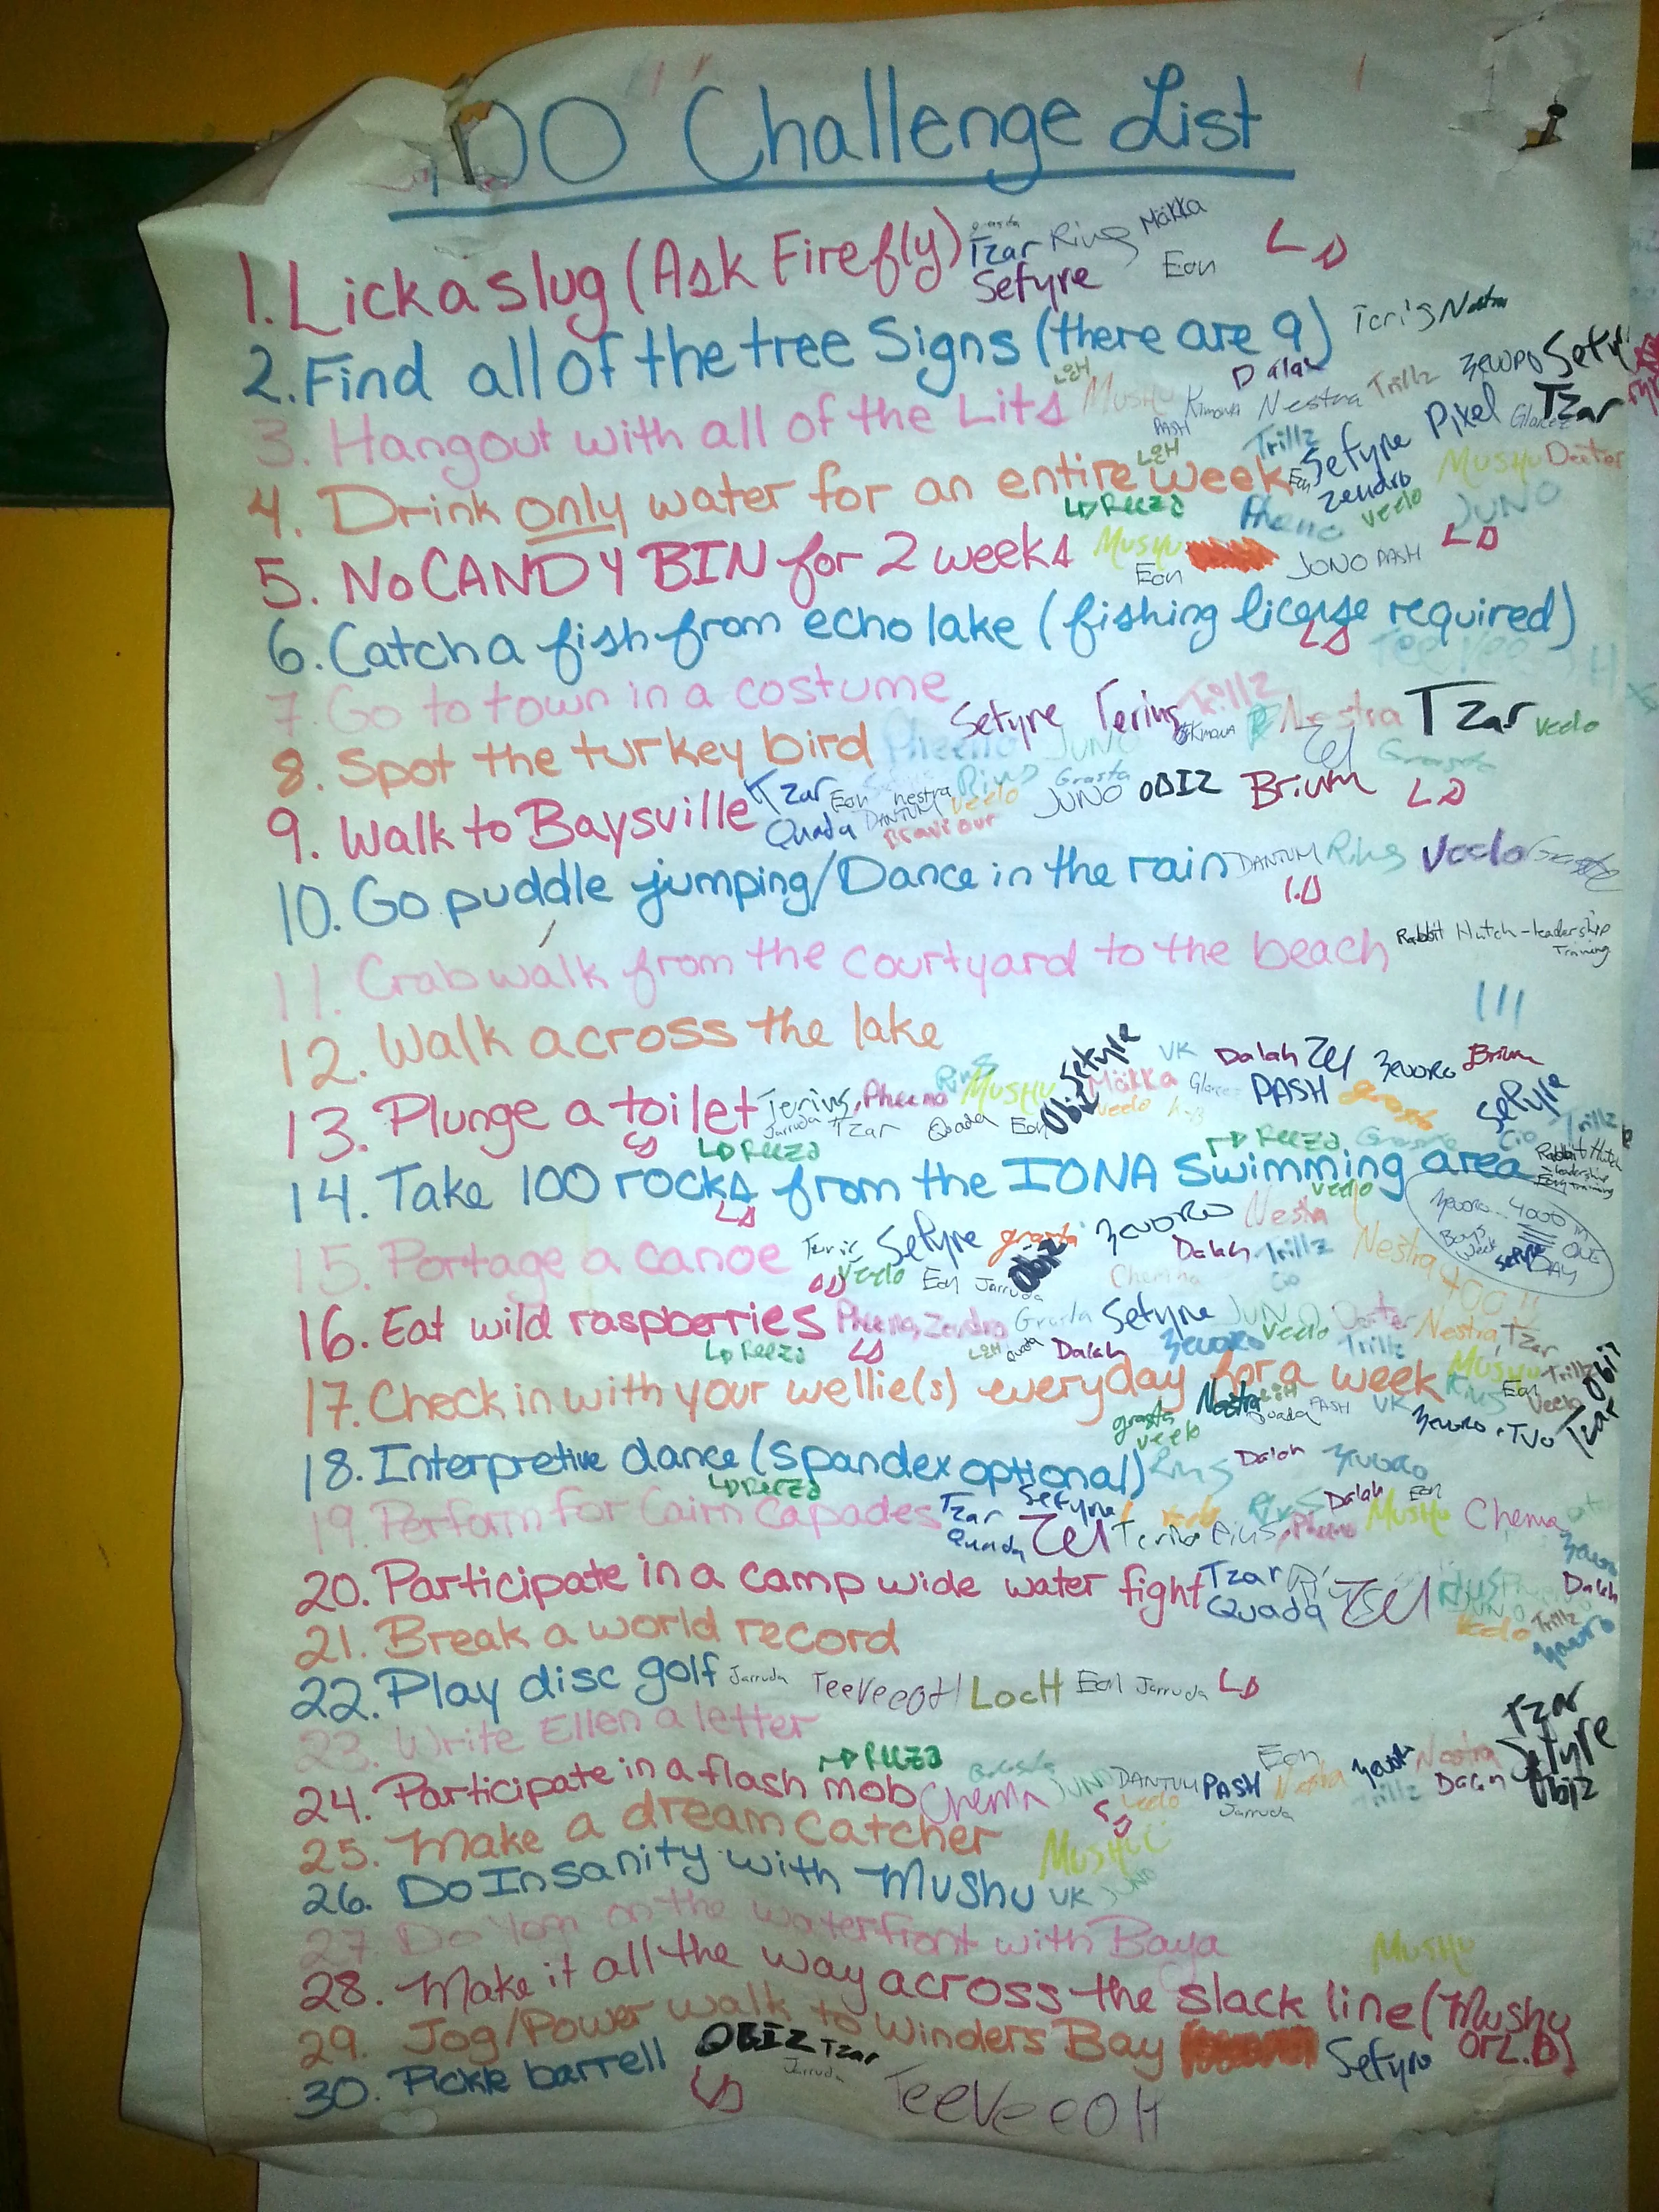 100 Challenge List
1. Lick a slug (Ask Firefly) Tzar Rius Mökka
Setyre Eon LD
2. Find all of the tree signs (there are 9) Nestra
LOH Dalah Trillz Zeuoro Setyre
3. Hangout with all of the Lits Mushu Kimowa Nestra Pixel Tzar
PASH
LOH Trillz Setyre Mushu Deeter
4. Drink only water for an entire week Eon Zendro
Reeza Pheeno Veelo JUNO
5. No CANDY BIN for 2 weeks Mushu JONO PASH LD
Eon
6. Catch a fish from echo lake (fishing license required)
LD TeeVee
7. Go to town in a costume Setyre Terius Trillz Nestra Tzar Veelo
8. Spot the turkey bird Pheeno JUNO Zel Grasta
9. Walk to Baysville Tzar Eon nestra Rius Grasta JUNO OBIZ Brium LD
Quada DANTUM Veelo
10. Go puddle jumping/Dance in the rain DANTUM Rius Veelo
LD
11. Crab walk from the courtyard to the beach Rabbit Hutch - leadership
Training
12. Walk across the lake
Setyre VK Dalah Zel Zeuoro Brium
13. Plunge a toilet Terius, Pheeno Rius Mushu Obiz Mökka PASH grasta Setyre
Jarruda Tzar Quada Eon Veelo
LD Reeza Reeza Grasta Cio Trillz
14. Take 100 rocks from the IONA swimming area Rabbit Hutch
leadership
training
LD Veelo
Zeuoro... 4000 in
Boys Week ONE
Setyre DAY
15. Portage a canoe Setyre grasta Obiz Zeuoro Nestra
Dalah Trillz Nestra 400!!
LD Veelo Eon Jarruda Cio
16. Eat wild raspberries Pheeno, Zendro Grasta Setyre JUNO Deeter Nestra, Tzar
Reeza LD LOH Quada Dalah Zeuoro Veelo Trillz
17. Check in with your wellie(s) everyday for a week Mushu Trillz Obiz
Rius Eon Veelo
grasta Nestra LOH Quada PASH VK Zeuoro Tzar
Veelo
18. Interpretive dance (spandex optional) Rius Dalah Zeuoro
Reeza
19. Perform for Cairn Capades Tzar Setyre Rius Dalah Eon Mushu Chema
Quada Zel Pheeno
20. Participate in a camp wide water fight Tzar Zel JUNO Dalah
Quada Veelo Trillz
Zeuoro
21. Break a world record
22. Play disc golf Jarruda TeeVeeOH LocH Eon Jarruda LD
23. Write Ellen a letter
Reeza
24. Participate in a flash mob Chema JUNO DANTUM PASH Eon Nestra Zeuoro Nestra Tzar
Veelo Jarruda Trillz Dalah Setyre
LD Obiz
25. Make a dream catcher Mushu
26. Do Insanity with Mushu VK JUNO
27. Do Yoga on the waterfront with Baya
Mushu
28. Make it all the way across the slack line (Mushu
or L.D)
29. Jog/Power walk to Winders Bay Setyre
30. Pickle barrell OBIZ Tzar
Jarruda
LD TeeVeeOH